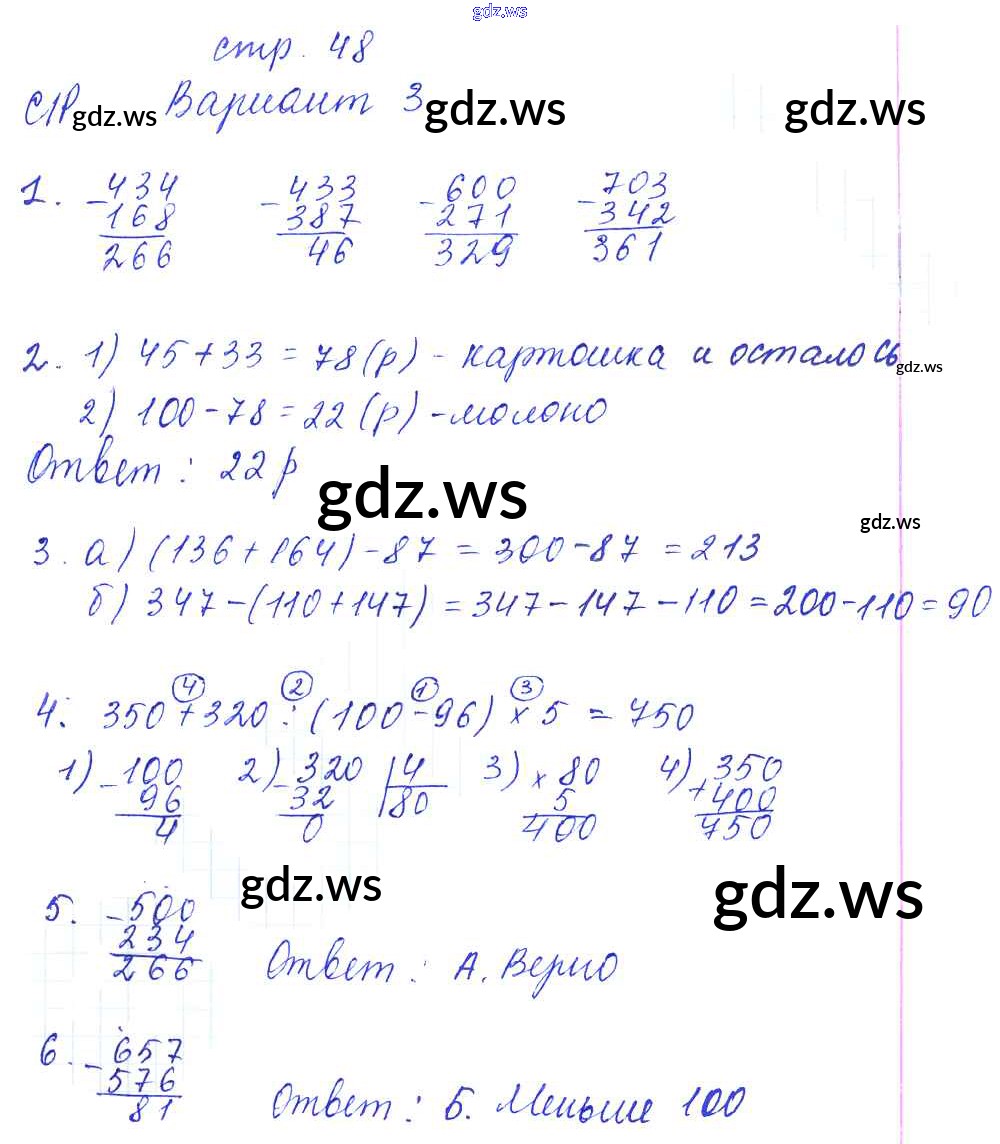 gdz.ws
стр. 48
С/Р Вариант 3
gdz.ws gdz.ws gdz.ws
1. -434 -433 -600 -703
168 387 271 342
266 46 329 361
2. 1) 45+33=78(р) - картошка и осталось
gdz.ws
2) 100-78=22(р) - молоко
Ответ: 22р
gdz.ws
gdz.ws
3. а) (136+164)-87=300-87=213
б) 347-(110+147)=347-147-110=200-110=90
4 2 1 3
4. 350+320:(100-96)×5=750
1) -100 2) -320 |4 3) ×80 4) +350
96 32 80 5 400
4 0 400 750
gdz.ws gdz.ws
5. -500
234
266 Ответ: А. Верно
6. -657
576
81 Ответ: Б. Меньше 100